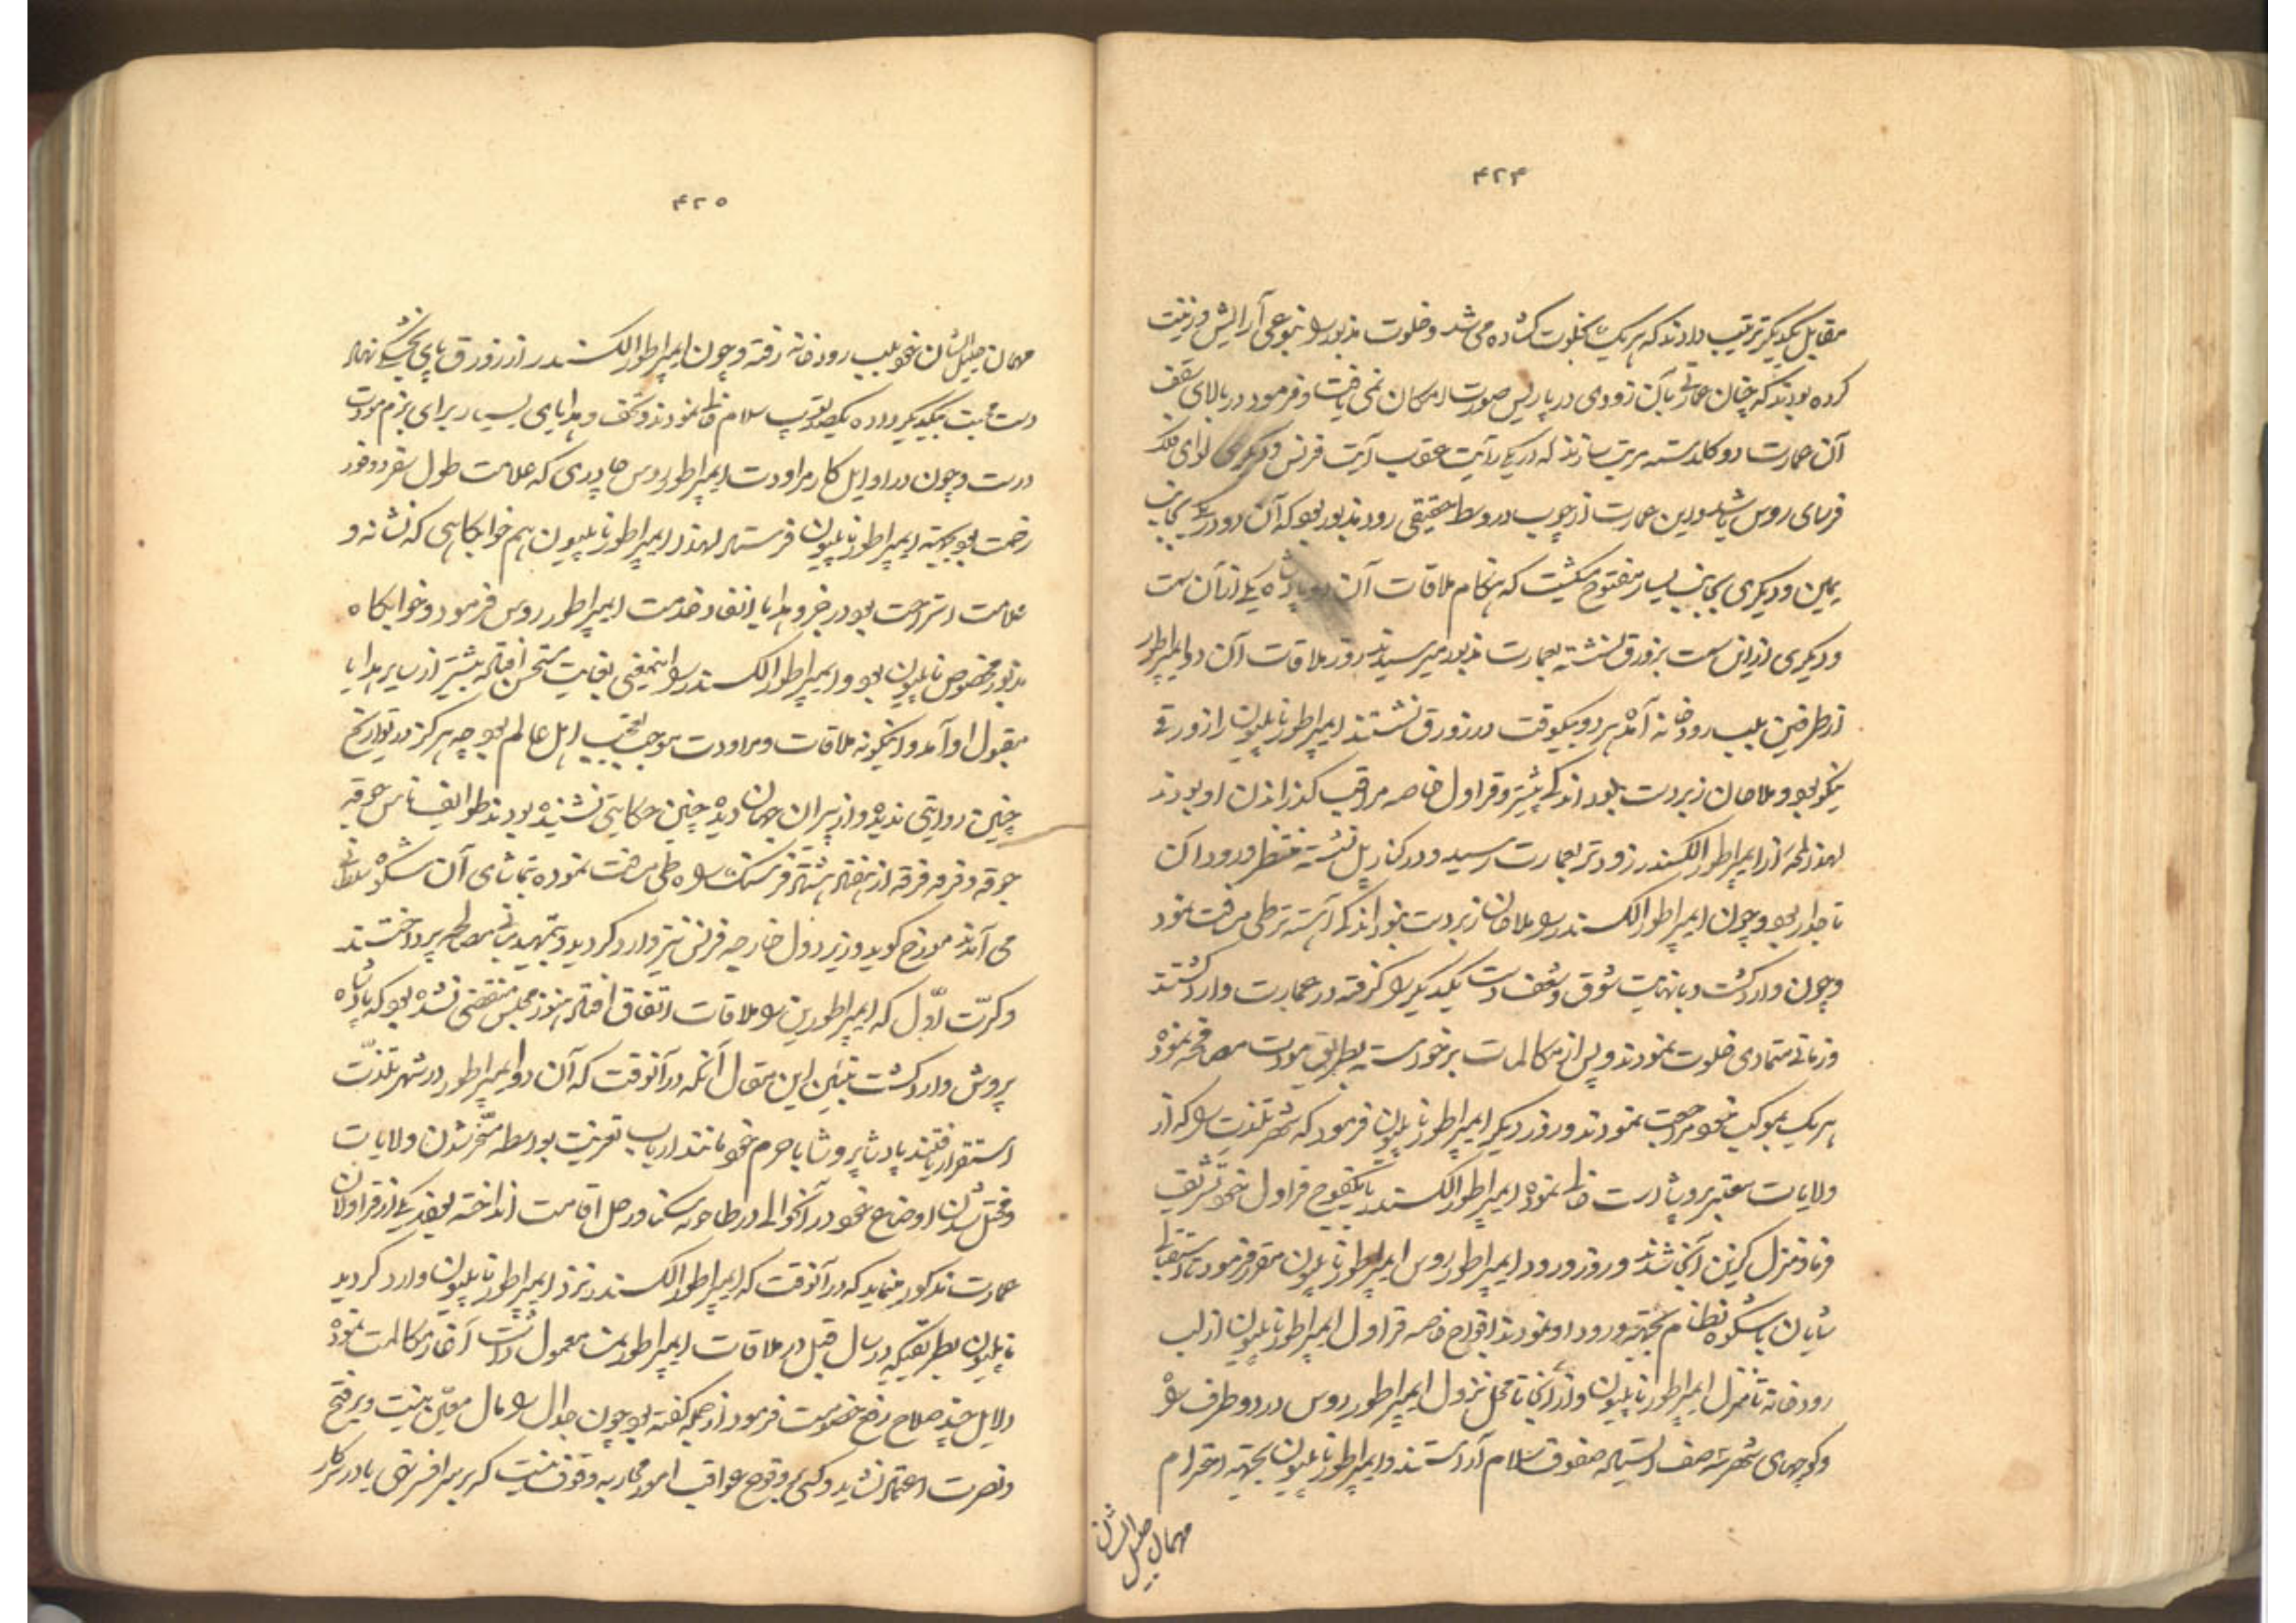 ۴۲۴
مقابل یکدیگر ترتیب دادند که هر یک بخلوت کشاده می شد و خلوت مذبور را بنوعی آرایش و زینت
کرده بودند که چنان عمارتی بآن زودی در پاریس صورت امکان نمی یافت و فرمود در بالای سقف
آن عمارت دو کلدسته مرتب سازند که در یکی رآیت عقاب آیت فرنس و دیکری لوای فلک
فرسای روس باشد و این عمارت از چوب در وسط حقیقی رود مذبور بود که آن دو در یکی بجانب
یمین و دیکری بجانب یسار مفتوح میکشت که هنکام ملاقات آن دو پادشاه یکی از آن سمت
و دیکری از این سمت بزورق نشسته بعمارت مذبور میرسیدند روز ملاقات آن دو ایمپراطور
از طرفین بلب رودخانه آمده هر دو بیکوقت در زورق نشستند ایمپراطور ناپلیون را زورقی
نیکو بود و ملاحان زبردست بودند که پیشرو قراول خاصه مراقب کذراندن او بودند
لهذا لمحه از ایمپراطور الکسندر زودتر بعمارت رسیده و در کنار پل نشسته منتظر ورود آن
تاجدار بود و چون ایمپراطور الکسندر را ملاحان زبردست نبودند که آهسته تر طی مسافت نمود
و چون وارد کشت و با نهایت شوق و شعف دست یکدیکر را کرفته در عمارت وارد کشتند
و زمانی متمادی خلوت نمودند و پس از مکالمات برخواسته بطریق مودت مصافحه نموده
هر یک بموکب خود مراجعت نمودند و روز دیکر ایمپراطور ناپلیون فرمود که شهر تلذیت را که از
ولایات معتبر پروشا است خالی نموده ایمپراطور الکسندر با یکفوج قراول خود تشریف
فرما و منزل کزین آنجا شدند و روز ورود ایمپراطور روس ایمپراطور ناپلیون مقرر فرمود تا استقبالی
شایان با شکوه نظام بجهة ورود او نمودند افواج خاصه قراول ایمپراطور ناپلیون از لب
رودخانه تا منزل ایمپراطور ناپلیون و از آنجا تا محل نزول ایمپراطور روس در دو طرف راه
و کوچهای شهر سه صف ایستاده صفوف سلام آراستند و ایمپراطور ناپلیون بجهة احترام
مهمان جلیل الشان
۴۲۵
مهمان جلیل الشان خود بلب رودخانه رفته و چون ایمپراطور الکسندر از زورق پای بخشکی نهاد
دست محبت بیکدیکر داده یکصد توپ سلام خالی نمودند و تحف و هدایای بسیار برای بزم مودت
درست و چون در اوایل کار مراودت ایمپراطور روس چادری که علامت طول سفر و وفور
زحمت بود بجهة ایمپراطور ناپلیون فرستاد لهذا ایمپراطور ناپلیون هم خوابکاهی که نشانه و
علامت استراحت بود در جزو هدایا انفاد خدمت ایمپراطور روس فرمود و خوابکاه
مذبور مخصوص ناپلیون بود و ایمپراطور الکسندر را اینمعنی بغایت مستحسن افتاد بیشتر از سایر هدایا
مقبول او آمد و اینکونه ملاقات و مراودت موجب تعجب اهل عالم بود چه هرکز در تواریخ
چنین روایتی ندیده و از پیران جهان دیده چنین حکایتی نشنیده بودند طوایف ناس جوقه
جوقه و فرقه فرقه از هفتاد هشتاد فرسنک راه طی مسافت نموده بتماشای آن شکوه سلطانی
می آمدند مورخ کوید وزیر دول خارجه فرنس نیز وارد کردید و بتمهید مبانی مصالحه پرداختند
و کرّت اوّل که ایمپراطورین را ملاقات اتفاق افتاد هنوز مجلس منقضی نشده بود که پادشاه
پروش وارد کشت تبیین این مقال آنکه در آنوقت که آن دو ایمپراطور در شهر تلذیت
استقرار یافتند پادشا پروشا با حرم خود مانند ارباب تعزیت بواسطه مسخّر شدن ولایات
و مختل شدن اوضاع خود در آنحوالی در طاحونه سکنا و رحل اقامت انداخته بود یکی از قراولان
عمارت مذکور مینماید که در آنوقت که ایمپراطور الکسندر نزد ایمپراطور ناپلیون وارد کردید
ناپلیون بطریقیکه در سال قبل در ملاقات ایمپراطور نمسه معمول داشت آغاز مکالمت نموده
دلایل چند صلاح رفع خصومت فرمود از جمله کفته بود چون جدال را مآل معیّن نیست و بر فتح
و نصرت اعتماد نشاید و کسی بوقوع عواقب امور محاربه وقوف نیست که بر سر افسر نهی یا در سر کار